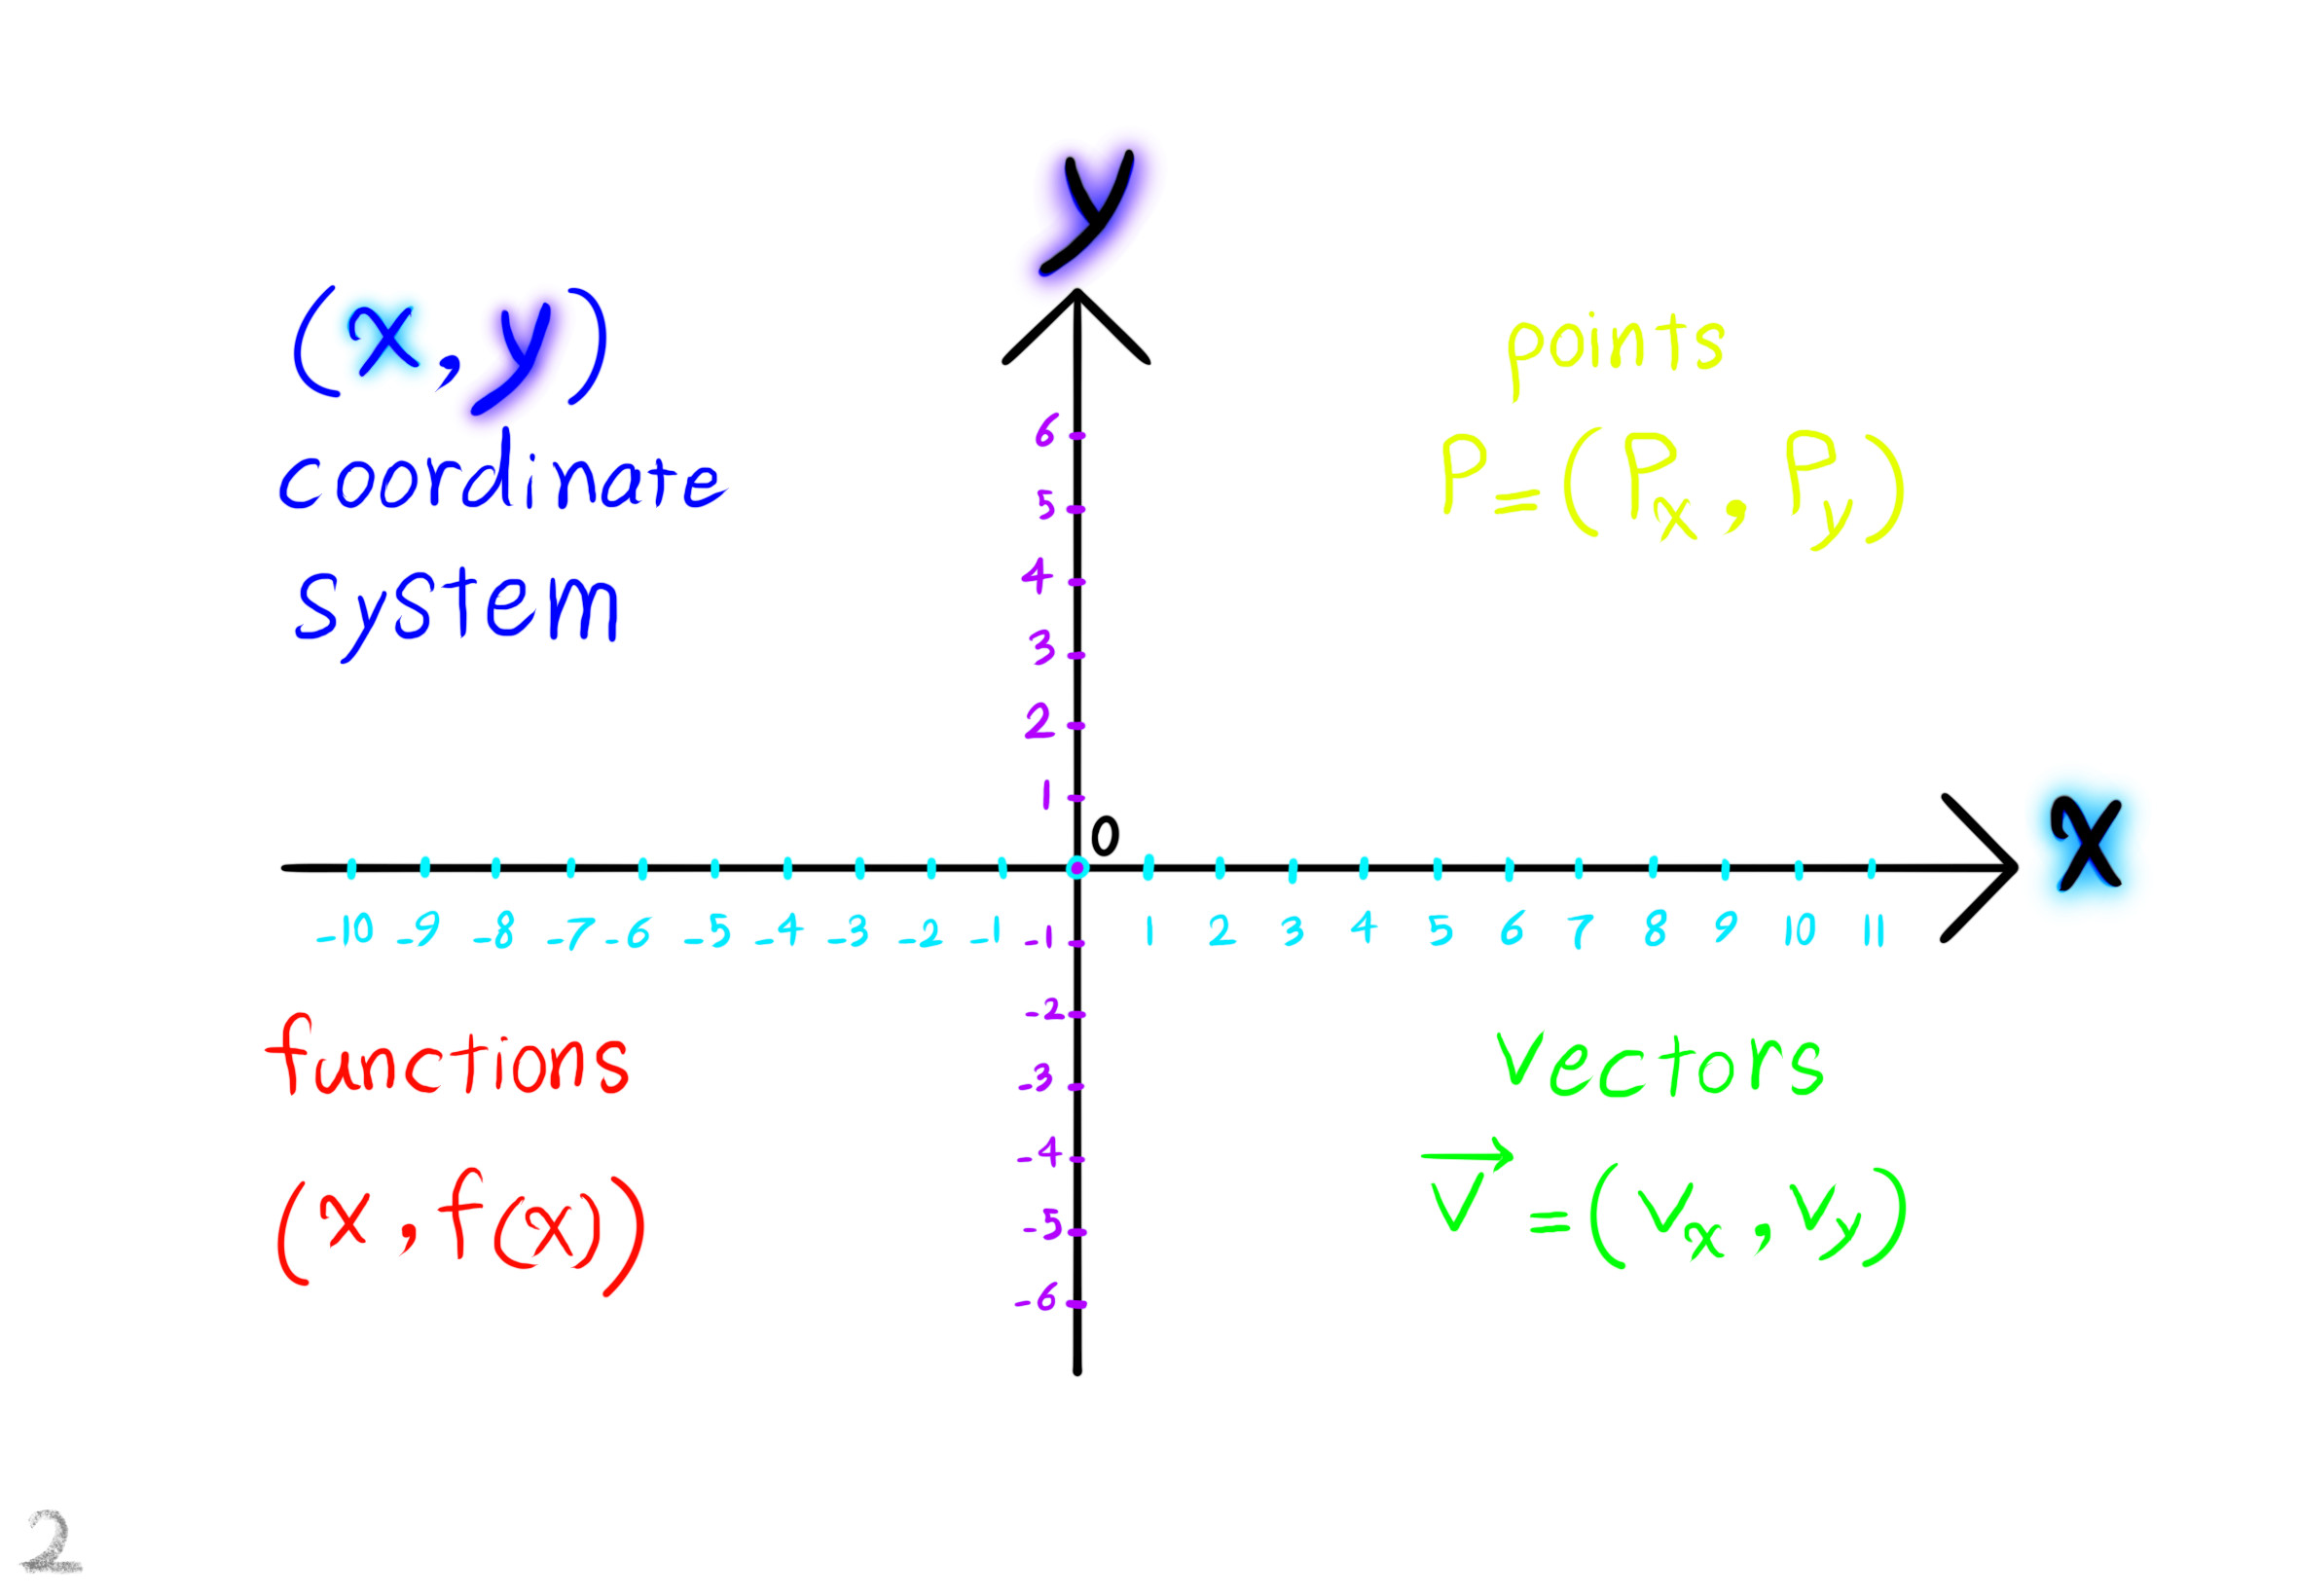 y
(x,y)
coordinate
system
points
P=(Px, Py)
6
5
4
3
2
1
0
x
-10 -9 -8 -7 -6 -5 -4 -3 -2 -1 1 2 3 4 5 6 7 8 9 10 11
-1
-2
-3
-4
-5
-6
functions
(x, f(x))
vectors
v⃗=(vx, vy)
2